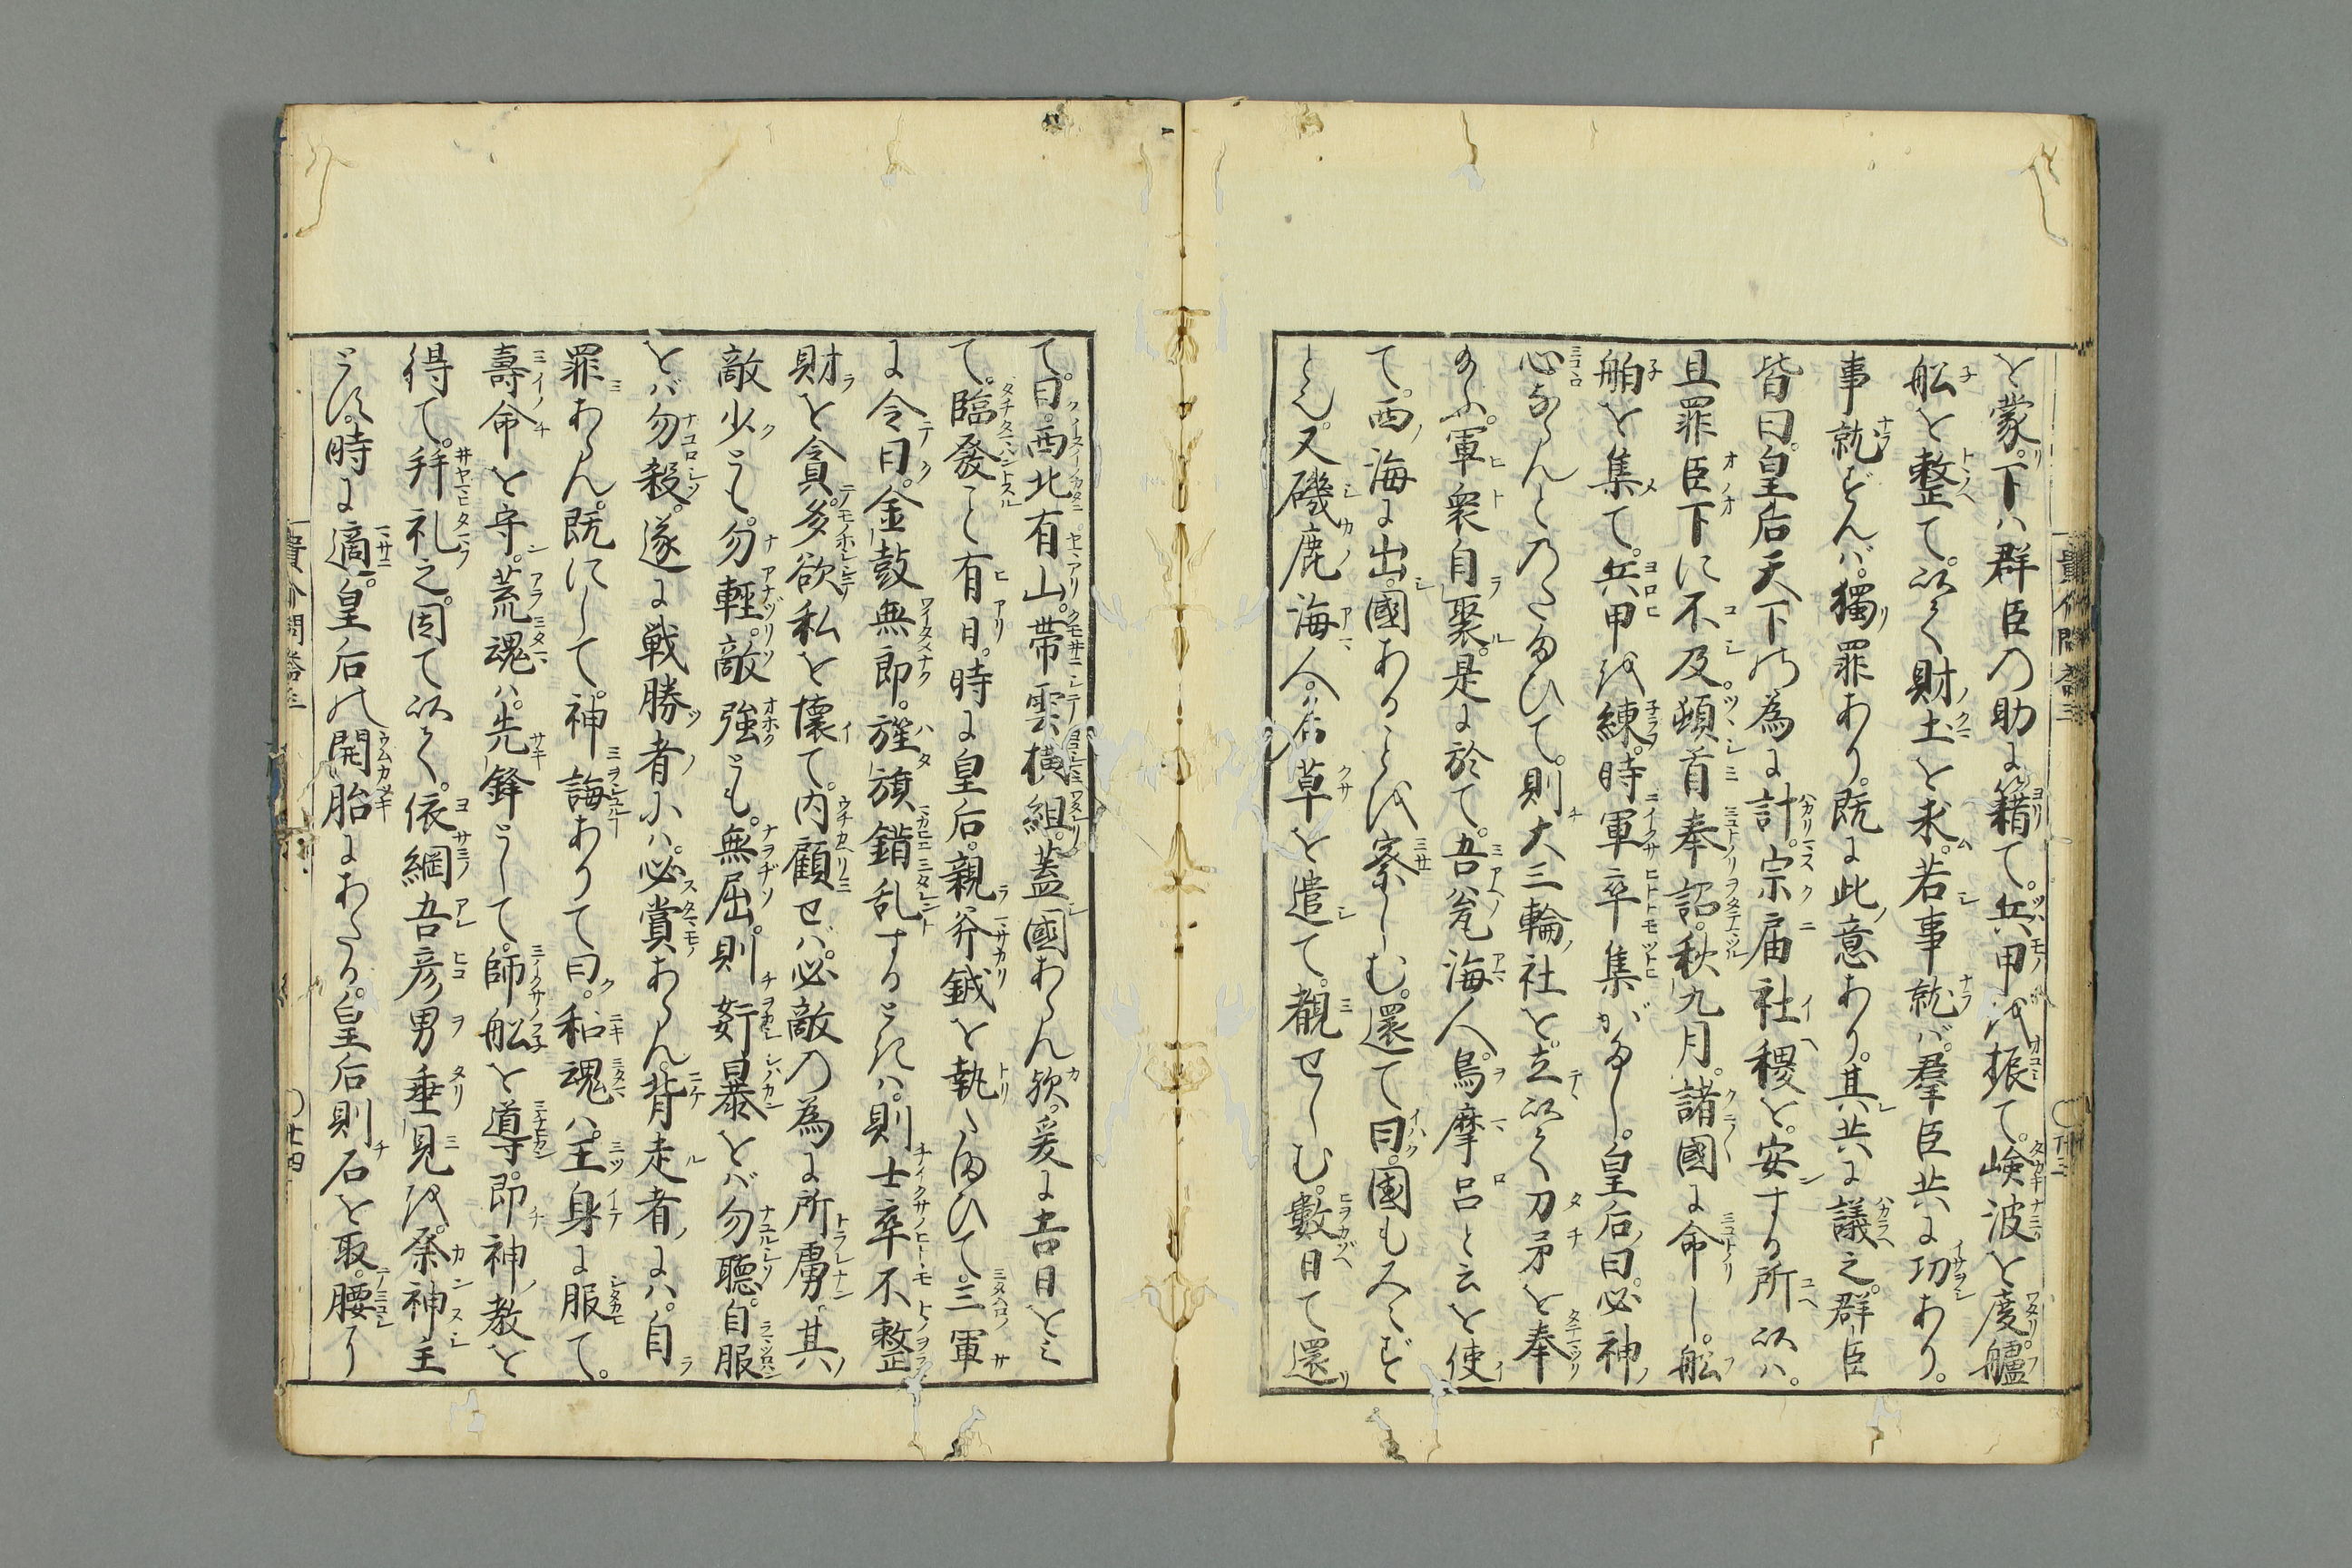 を蒙。下ハ群臣の助に籍て。兵甲を振て。嶮波を度。艫
舩を整て。以て財土を求。若事就ば。羣臣共に功あり。
事就ずんば。獨罪あり。既に此意あり。其共に議之。群臣
皆曰。皇后天下の為に計。宗庿社稷を。安する所以ハ。
且罪臣下に不及。頓首奉詔。秋九月。諸國に命し。舩
舶を集て。兵甲を練。時軍卒集がたし。皇后曰。必神
心ならんとのたまひて。則大三輪社を。立以て刀矛を奉
たまふ。軍衆自聚。是に於て。吾瓮海人。烏摩呂と云を使
て。西海に出。國あることを察しむ。還て曰。國もみへず
と也。又磯鹿海人。名草を遣て。覩せしむ。數日て還
て曰。西北有山。帶雲横組。蓋國あらん歟。爰に吉日を
て。臨發こと有日。時に皇后。親斧鉞を執たまひて。三軍
に令曰。金鼓無節。旌旗錯乱するときハ。則士卒不整
財を貪。多欲私を懷て。内顧せば。必敵の為に所虜。其
敵少とも。勿輕。敵強とも。無屈。則姧暴をば勿聽。自服
をば勿殺。遂に戦勝者にハ。必賞あらん。背走者にハ。自
罪あらん。既にして。神誨ありて曰。和魂ハ。王身に服て。
壽命を守。荒魂ハ。先鋒として。師舩を導。即神教を
得て。拜礼之。因て以て。依網吾彦男垂見を。祭神主
とす。時に適。皇后の開胎にあたる。皇后則石を取。腰に